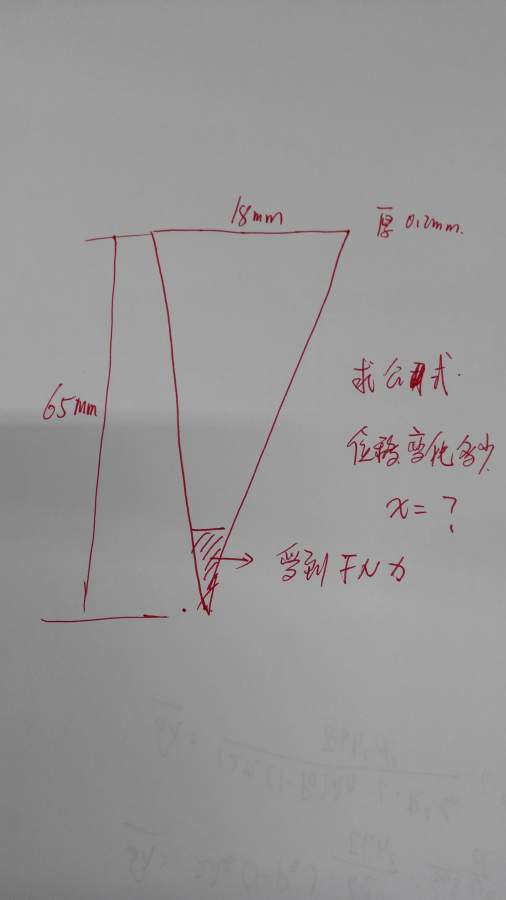 18mm
厚 0.2mm.
65mm
求公式.
位移变化多少
x=?
受到 F N 力